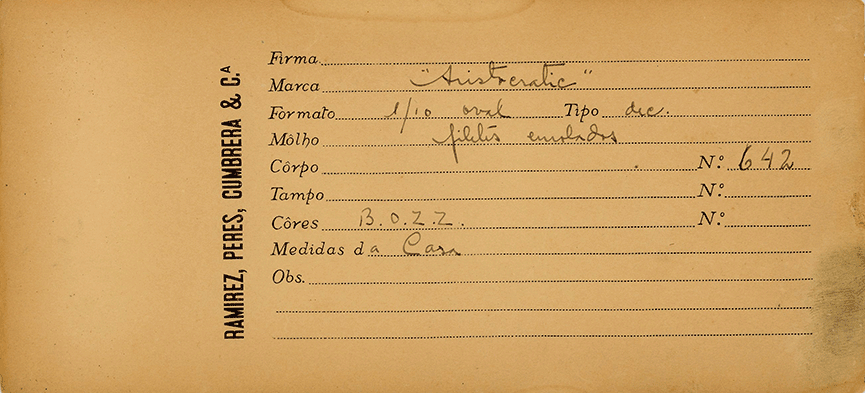 RAMIREZ, PERES, CUMBRERA & C.ᴬ
Firma
Marca "Aristocratic"
Formato 1/10 oval Tipo dec.
Môlho filetes enrolados
Côrpo N.º 642
Tampo N.º
Côres B.O.Z.Z. N.º
Medidas da Casa
Obs.